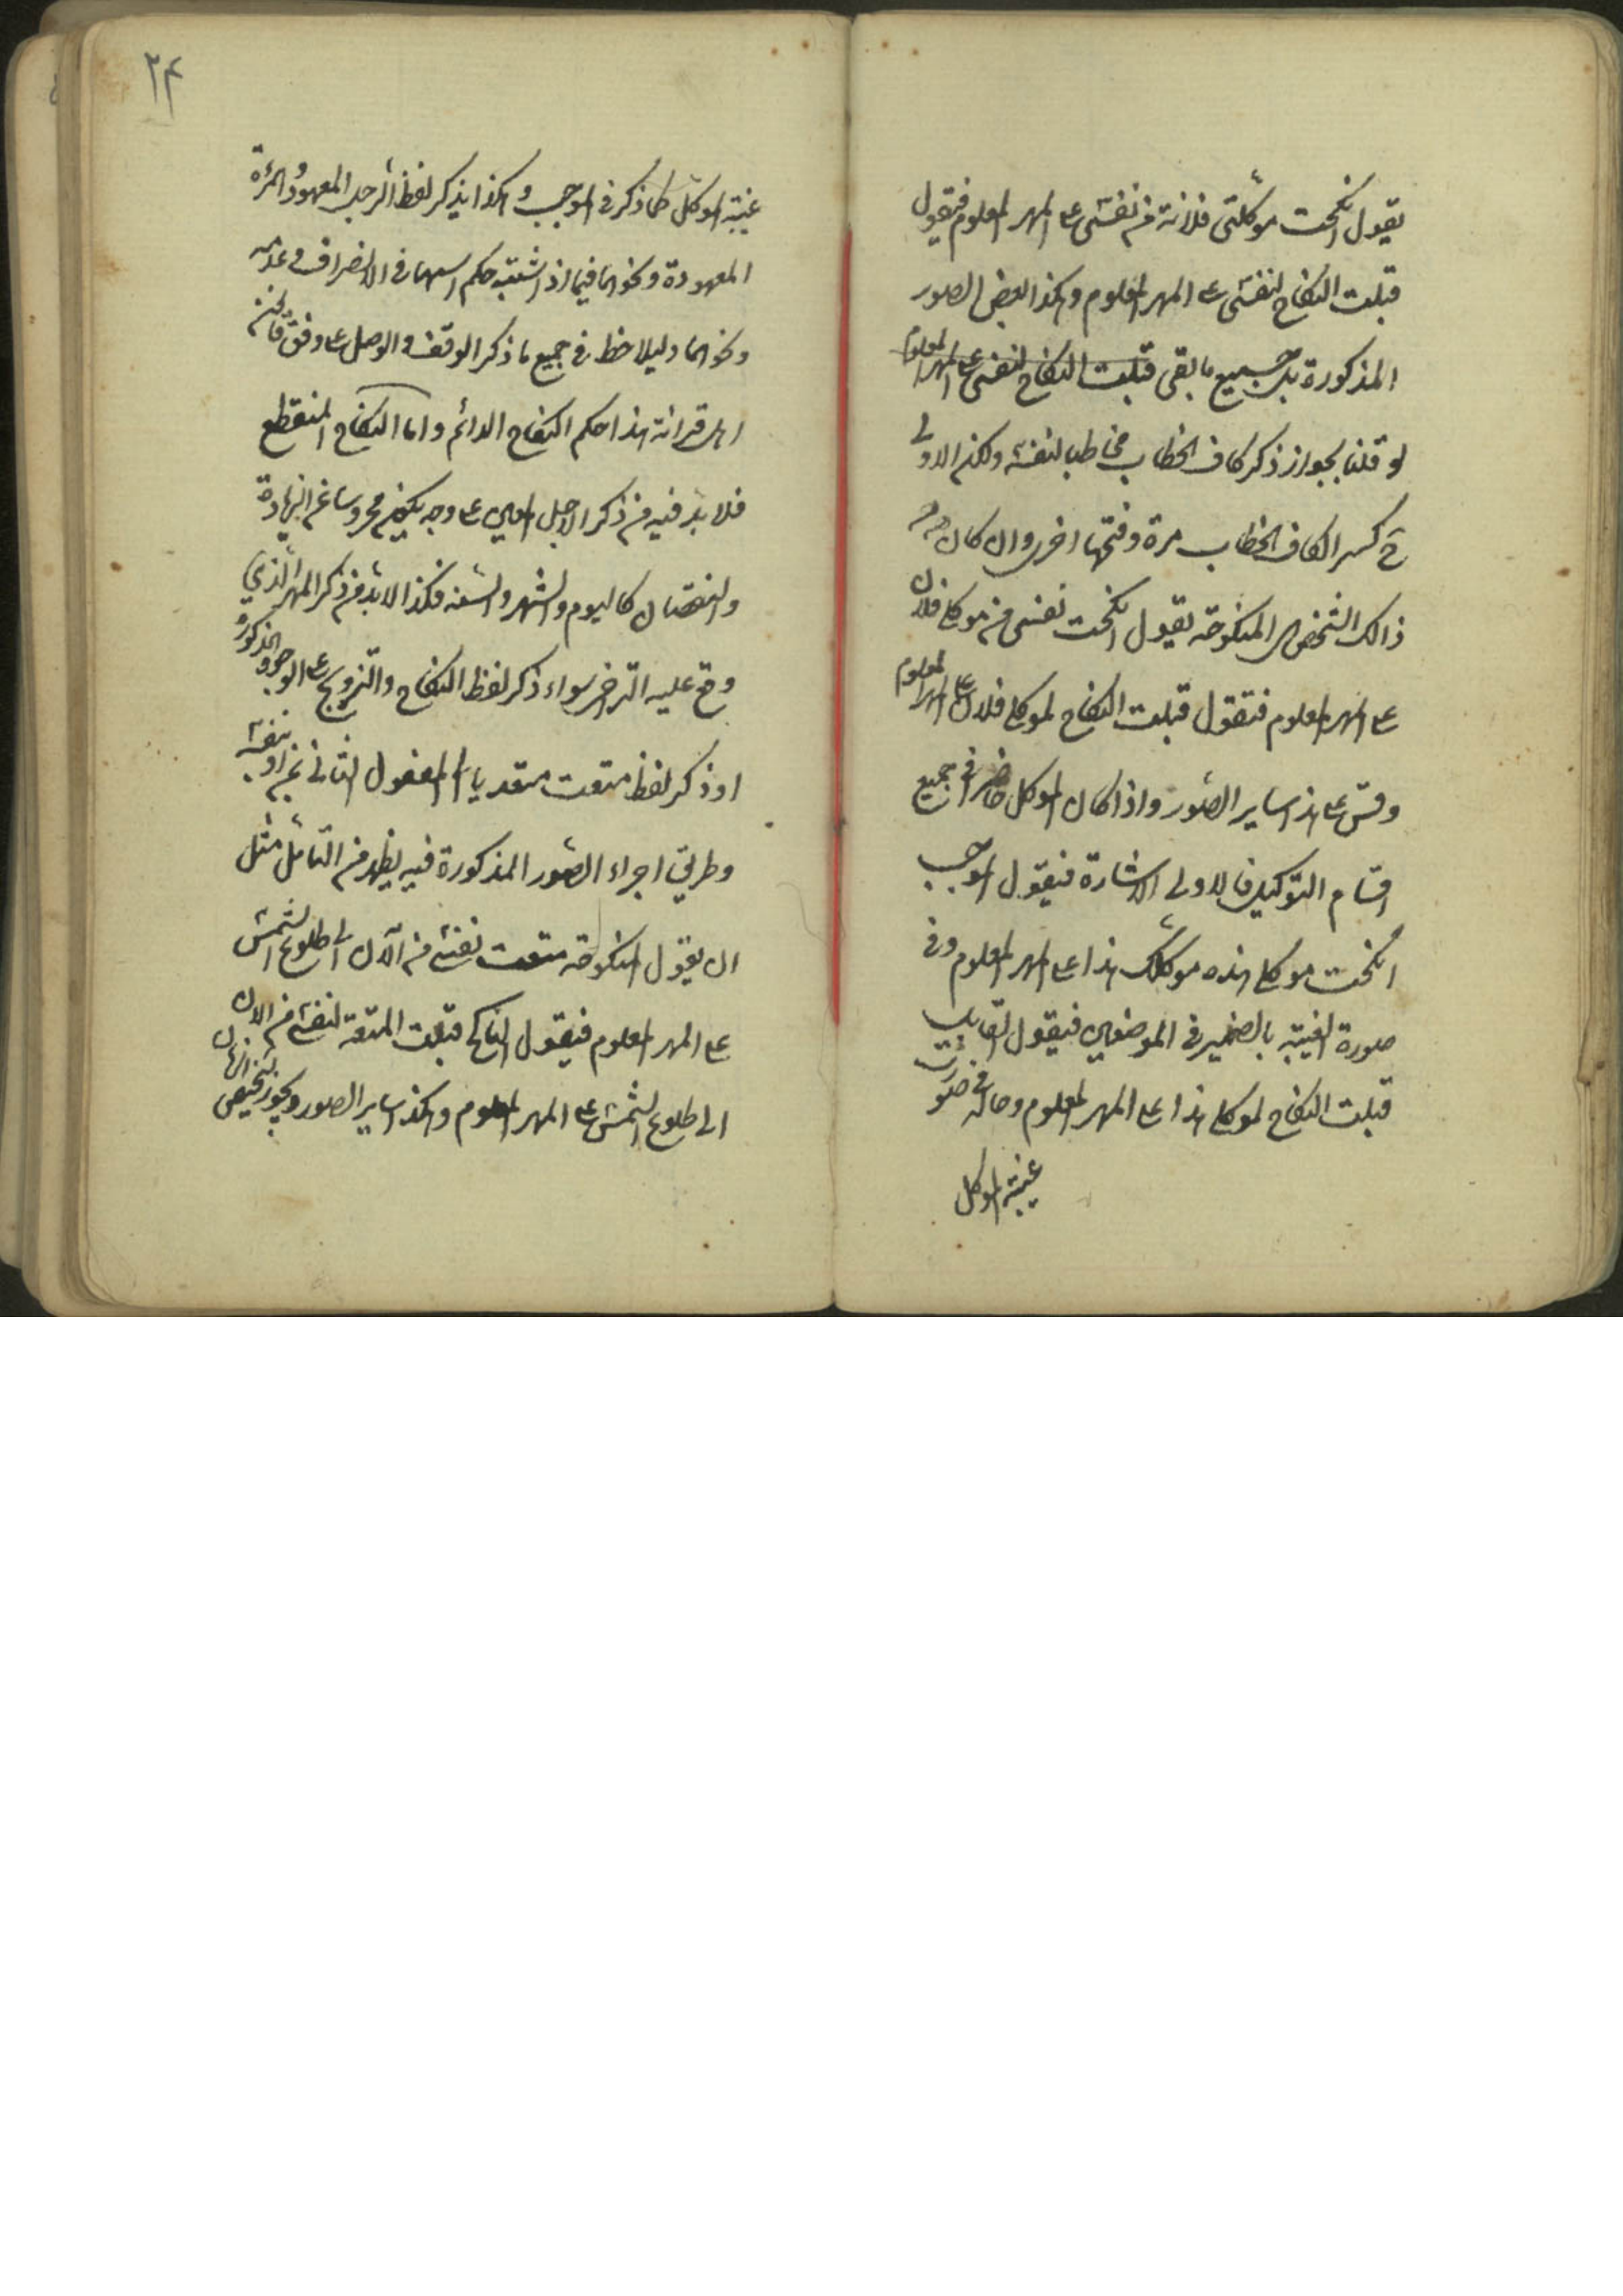 يقول انكحت موكلتى فلانة من نفسى على المهر المعلوم فتقول
قبلت النكاح لنفسى على المهر المعلوم وهكذا بعض الصور
المذكورة بل جميع ما بقى قبلت النكاح لنفسى على المهر المعلوم
لو قلنا بجواز ذكر كاف الخطاب مخاطبا لنفسه ولكن الاولى
ح كسر الكاف الخطاب مرة وفتحها اخرى وان كان
ذالك الشخص المنكوحة يقول انكحت نفسى من موكلى فلان
على المهر المعلوم فتقول قبلت النكاح لموكلى فلان على المهر المعلوم
وقس على هذا ساير الصور واذا كان الموكل حاضرا فى جميع
اقسام التوكيل فالاولى الاشارة فيقول الموجب
انكحت موكلى هذه موكلك هذا على المهر المعلوم وفى
صورة الغيبة بالضمير فى الموضعين فيقول القابل
قبلت النكاح لموكلى هذا على المهر المعلوم وحاله فى صورت
غيبة الموكل
۲۴
غيبة الموكل كما ذكر فى الموجب وهكذا يذكر لفظ الرجل المعهود والمرئة
المعهودة ونحوهما فيما اذا اشتبه حكم اسمهما فى الانصراف وعدمه
ونحوهما وليلاحظ فى جميع ما ذكر الوقف والوصل على وفق قانون
اهل قرائة هذا حكم النكاح الدائم واما النكاح المنقطع
فلا بد فيه من ذكر الاجل المعين على وجه يكون محروسا عن الزيادة
والنقصان كاليوم والشهر والسنه فكذا لابد من ذكر المهر الذي
وقع عليه التراضى سواء ذكر لفظ النكاح والتزويج على الوجوه المذكورة
اوذكر لفظ متعت متعديا الى المفعول الثانى بمن او بنفسه
وطريق اجراء الصور المذكورة فيه يظهر من التامل مثل
ان يقول المنكوحة متعت نفسى من الآن الى طلوع الشمس
على المهر المعلوم فيقول الناكح قبلت المتعة لنفسى من الان
الى طلوع الشمس على المهر المعلوم وهكذا ساير الصور ويجوز تخصيص الزمان